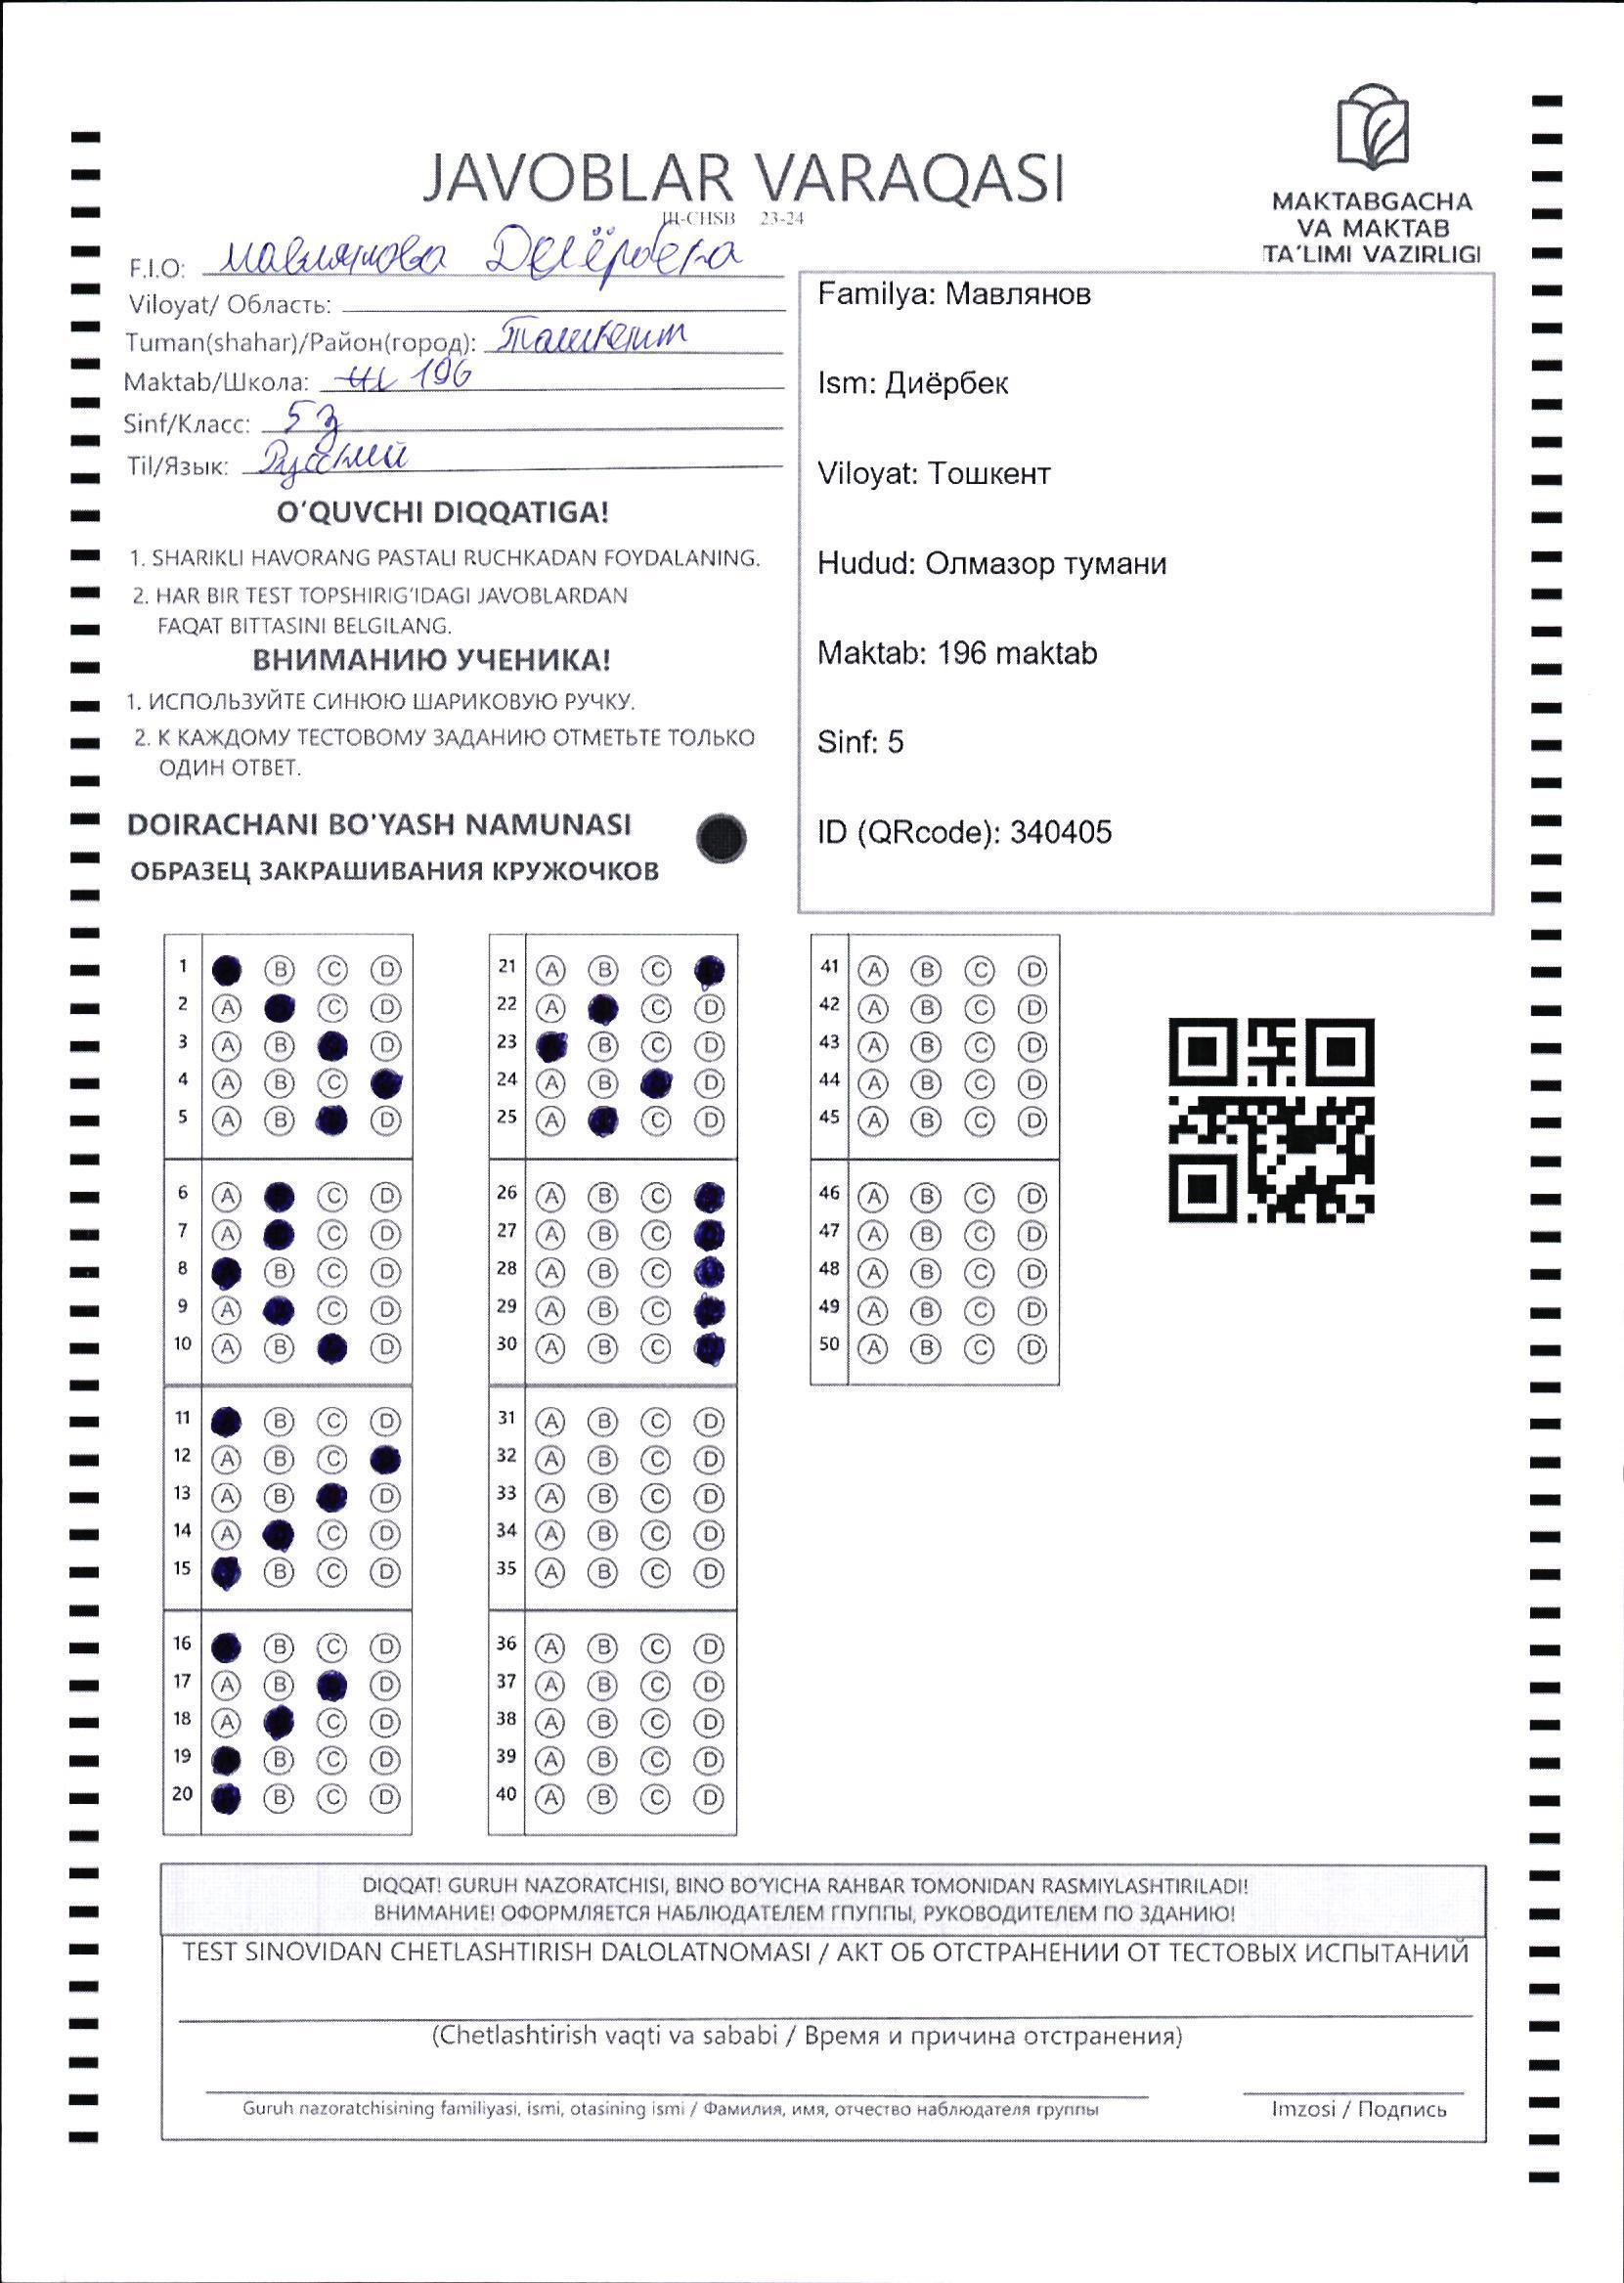 JAVOBLAR VARAQASI
III-CHSB 23-24
MAKTABGACHA
VA MAKTAB
TA'LIMI VAZIRLIGI
F.I.O: Мавлянова Диёрбека
Viloyat/ Область:
Tuman(shahar)/Район(город): Ташкент
Maktab/Школа: 196
Sinf/Класс: 5 З
Til/Язык: Русский
O'QUVCHI DIQQATIGA!
1. SHARIKLI HAVORANG PASTALI RUCHKADAN FOYDALANING.
2. HAR BIR TEST TOPSHIRIG'IDAGI JAVOBLARDAN
FAQAT BITTASINI BELGILANG.
ВНИМАНИЮ УЧЕНИКА!
1. ИСПОЛЬЗУЙТЕ СИНЮЮ ШАРИКОВУЮ РУЧКУ.
2. К КАЖДОМУ ТЕСТОВОМУ ЗАДАНИЮ ОТМЕТЬТЕ ТОЛЬКО
ОДИН ОТВЕТ.
DOIRACHANI BO'YASH NAMUNASI
ОБРАЗЕЦ ЗАКРАШИВАНИЯ КРУЖОЧКОВ
Familya: Мавлянов
Ism: Диёрбек
Viloyat: Тошкент
Hudud: Олмазор тумани
Maktab: 196 maktab
Sinf: 5
ID (QRcode): 340405
1 B C D
2 A C D
3 A B D
4 A B C
5 A B D
6 A C D
7 A C D
8 B C D
9 A C D
10 A B D
11 B C D
12 A B C
13 A B D
14 A C D
15 B C D
16 B C D
17 A B D
18 A C D
19 B C D
20 B C D
21 A B C
22 A C D
23 B C D
24 A B D
25 A C D
26 A B C
27 A B C
28 A B C
29 A B C
30 A B C
31 A B C D
32 A B C D
33 A B C D
34 A B C D
35 A B C D
36 A B C D
37 A B C D
38 A B C D
39 A B C D
40 A B C D
41 A B C D
42 A B C D
43 A B C D
44 A B C D
45 A B C D
46 A B C D
47 A B C D
48 A B C D
49 A B C D
50 A B C D
DIQQAT! GURUH NAZORATCHISI, BINO BO'YICHA RAHBAR TOMONIDAN RASMIYLASHTIRILADI!
ВНИМАНИЕ! ОФОРМЛЯЕТСЯ НАБЛЮДАТЕЛЕМ ГПУППЫ, РУКОВОДИТЕЛЕМ ПО ЗДАНИЮ!
TEST SINOVIDAN CHETLASHTIRISH DALOLATNOMASI / АКТ ОБ ОТСТРАНЕНИИ ОТ ТЕСТОВЫХ ИСПЫТАНИЙ
(Chetlashtirish vaqti va sababi / Время и причина отстранения)
Guruh nazoratchisining familiyasi, ismi, otasining ismi / Фамилия, имя, отчество наблюдателя группы
Imzosi / Подпись